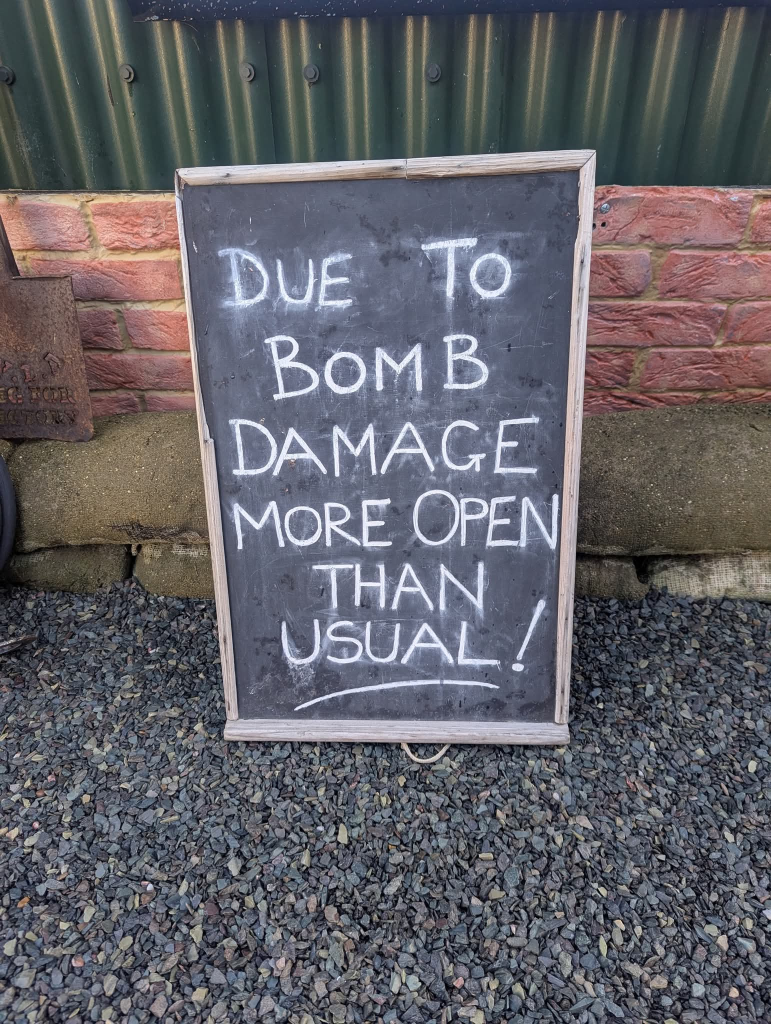 DUE TO
BOMB
DAMAGE
MORE OPEN
THAN
USUAL!
FOR
VICTORY